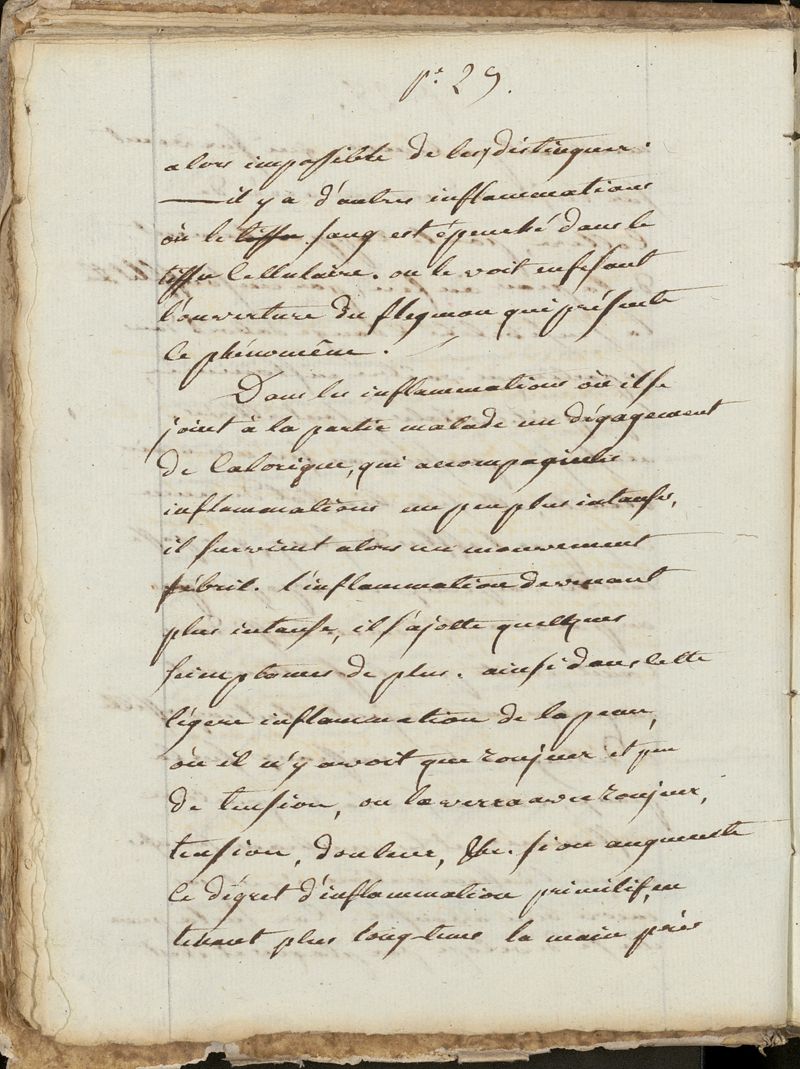 p.e 29.
alors impossible de les distinguer.
— il y a d'autres inflammations
où le tissu sang est épenché dans le
tissu cellulaire. on le voit enfesant
l'ouverture du flegmon qui présente
ce phénomène.
Dans les inflammations où il se
joint à la partie malade un dégagement
de calorique, qui accompagne les
inflammations un peu plus intense,
il survient alors un mouvement
fébril. l'inflammation devenant
plus intense, il s'ajotte quelques
simptomes de plus. ainsi dans cette
légere inflammation de la peau,
où il n'y avoit que roujeur et peu
de tension, on la verra avec roujeur,
tension, douleur, &c. si on augmente
le dégret d'inflammation primitif, en
tenant plus long-tems la main près